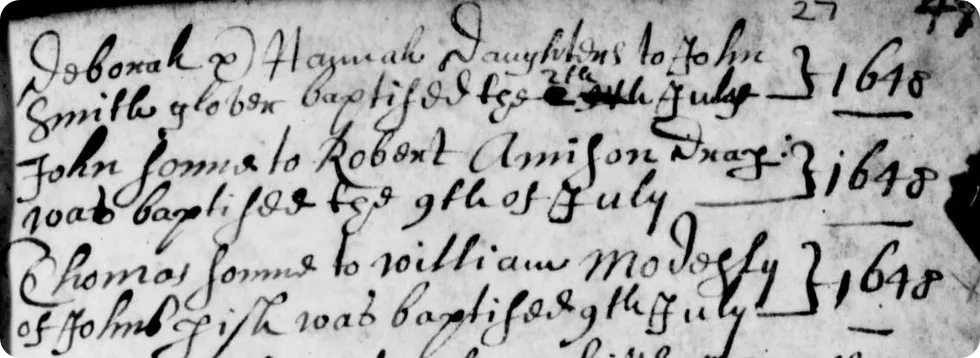 27 47
Deborah & Hannah Daughters to John
Smith glover baptised the 2th July } 1648
John sonne to Robert Amison Drap:
was baptised the 9th of July } 1648
Thomas sonne to William Modesty
of Johns pish was baptised 9th July } 1648